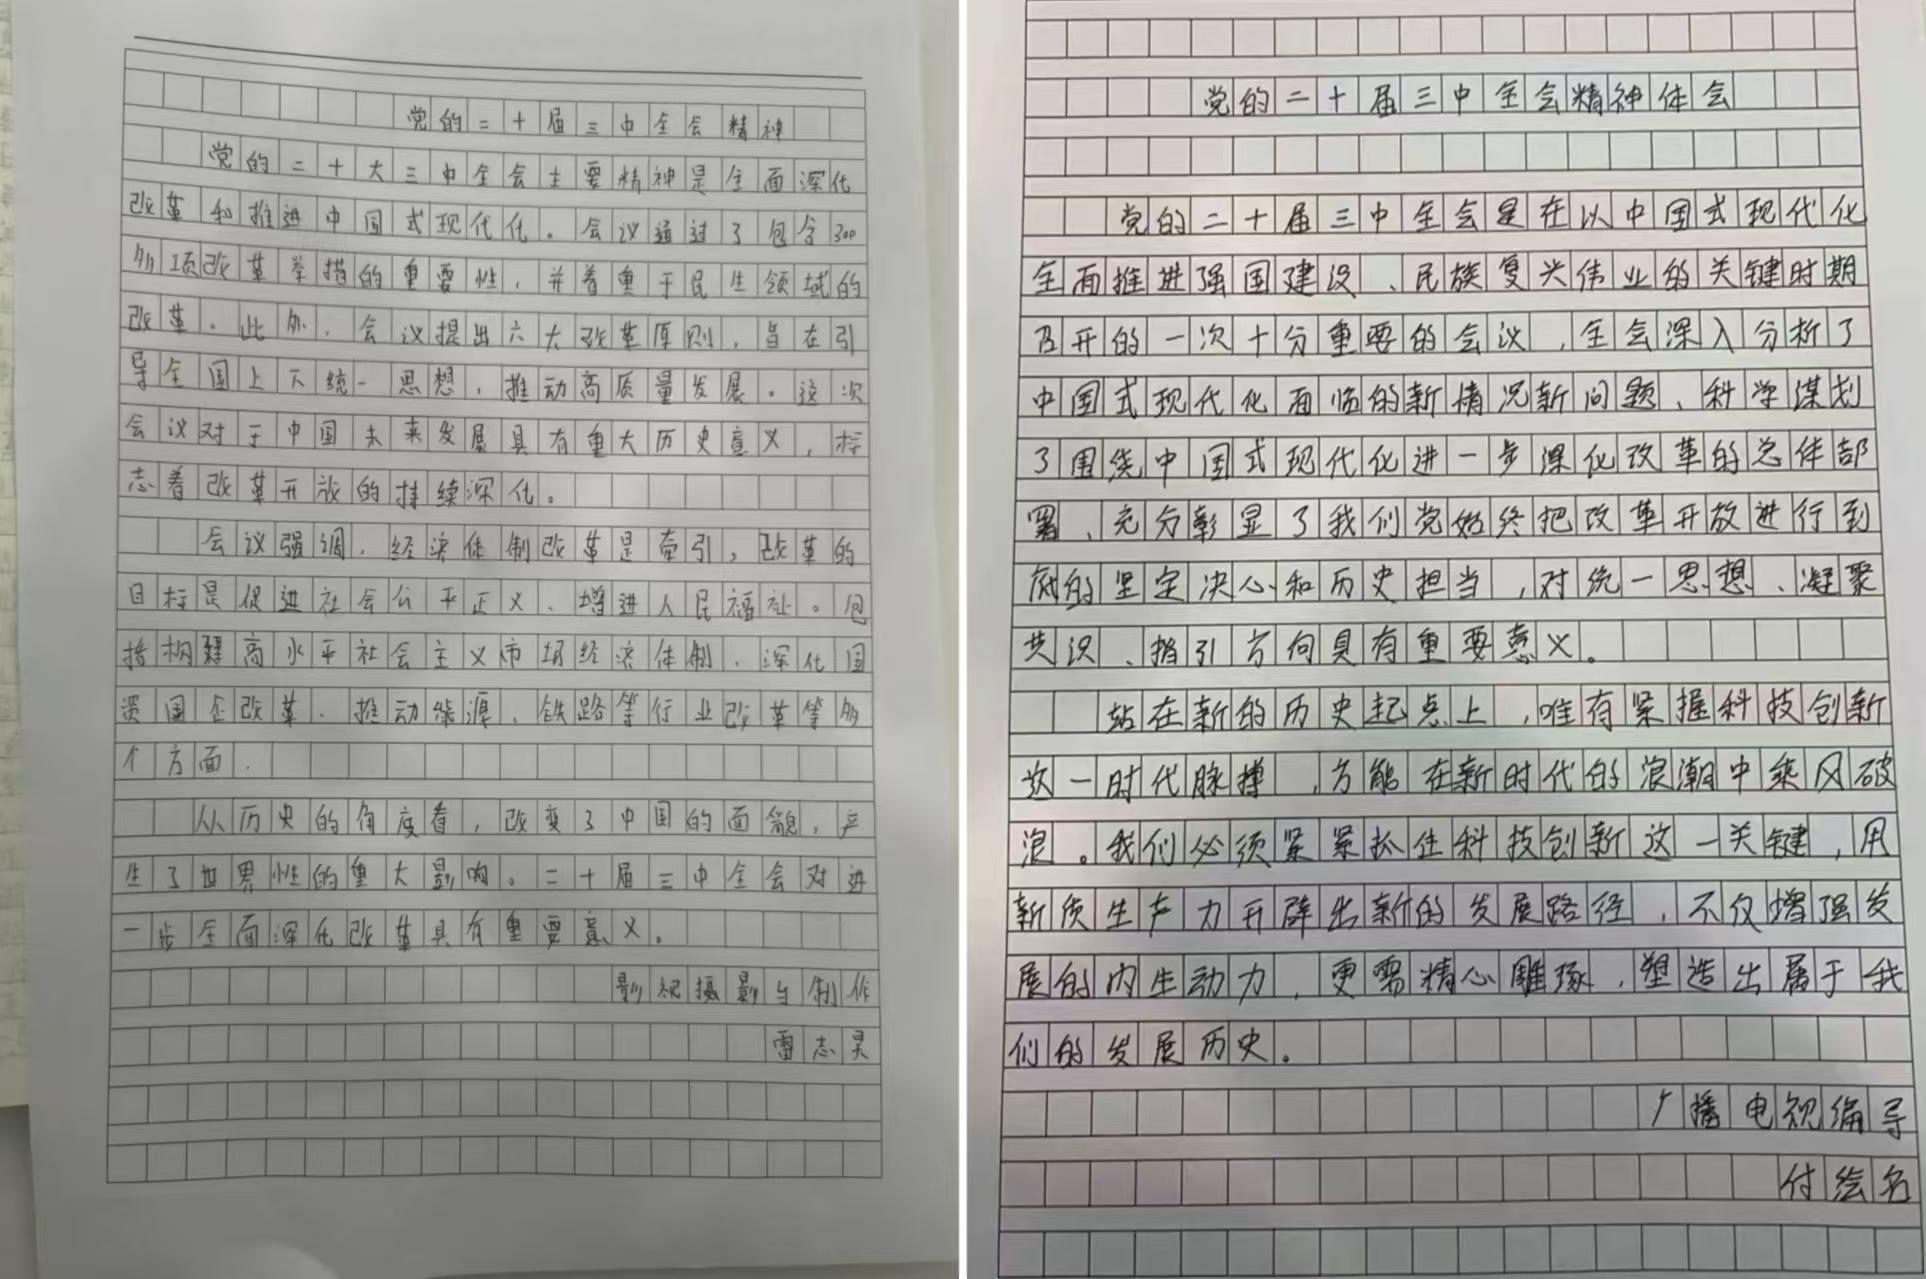 党的二十届三中全会精神
党的二十大三中全会主要精神是全面深化
改革和推进中国式现代化。会议通过了包含300
多项改革举措的重要性,并着重于民生领域的
改革。此外,会议提出六大改革原则,旨在引
导全国上下统一思想,推动高质量发展。这次
会议对于中国未来发展具有重大历史意义,标
志着改革开放的持续深化。
会议强调,经济体制改革是牵引,改革的
目标是促进社会公平正义、增进人民福祉。包
括构建高水平社会主义市场经济体制、深化国
资国企改革、推动能源、铁路等行业改革等多
个方面.
从历史的角度看,改变了中国的面貌,产
生了世界性的重大影响。二十届三中全会对进
一步全面深化改革具有重要意义。
影视摄影与制作
雷志昊
党的二十届三中全会精神体会
党的二十届三中全会是在以中国式现代化
全面推进强国建设、民族复兴伟业的关键时期
召开的一次十分重要的会议,全会深入分析了
中国式现代化面临的新情况新问题、科学谋划
了围绕中国式现代化进一步深化改革的总体部
署、充分彰显了我们党始终把改革开放进行到
底的坚定决心和历史担当,对统一思想、凝聚
共识、指引方向具有重要意义。
站在新的历史起点上,唯有紧握科技创新
这一时代脉搏,方能在新时代的浪潮中乘风破
浪。我们必须紧紧抓住科技创新这一关键,用
新质生产力开辟出新的发展路径,不仅增强发
展的内生动力,更需精心雕琢,塑造出属于我
们的发展历史。
广播电视编导
付绘名